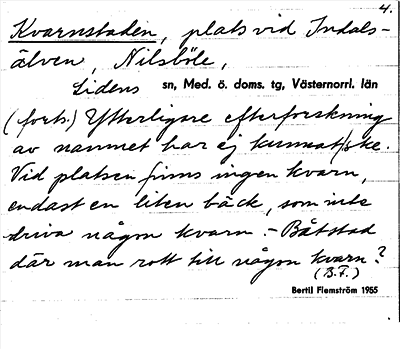 4.
Kvarnstaden, plats vid Indals-
älven, Nilsböle,
Lidens sn, Med. ö. doms. tg, Västernorrl. län
(forts.) Ytterligare efterforskning
av namnet har ej kunnat ske.
Vid platsen finns ingen kvarn,
endast en liten bäck, som inte
driva någon kvarn. - Båtstad
där man rott till någon kvarn?
(B.F.)
Bertil Flemström 1955